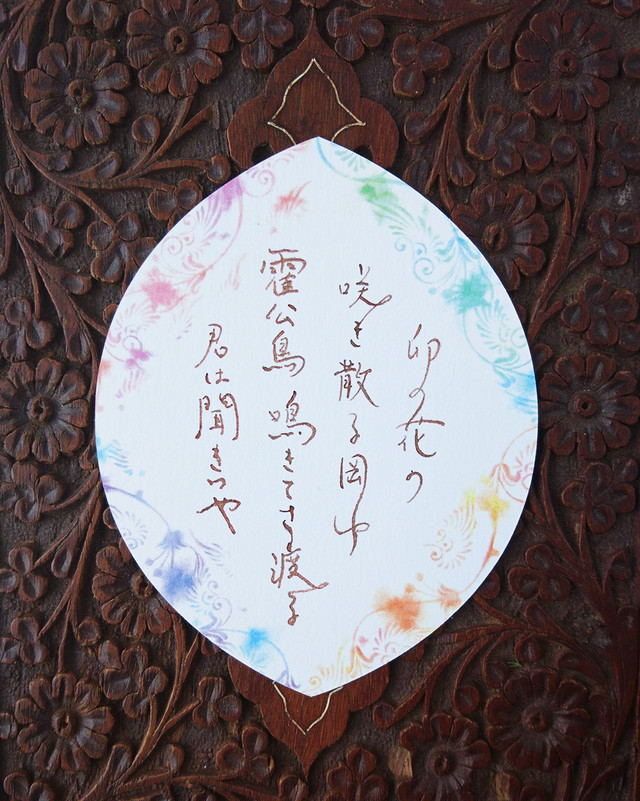 卯の花の
咲き散る岡ゆ
霍公鳥 鳴きてさ渡る
君は聞きつや